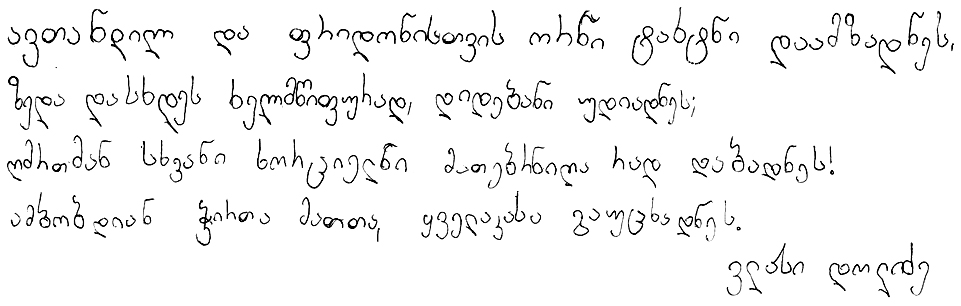 ავთანდილ და ფრიდონისთვის ორნი ტახტნი დაამზადნეს,
ზედა დასხდეს ხელმწიფურად, დიდებანი უდიადნეს;
ღმრთმან სხვანი ხორციელნი მათებრნილა რად დაბადნეს!
ამბობდიან ჭირთა მათთა, ყველაკასა გაუცხადნეს.
ვლასი დოლიძე